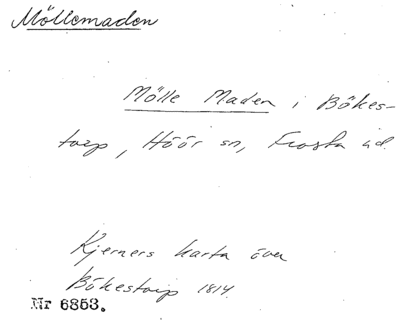 Möllemaden
Mölle Maden i Bökes-
torp, Höör sn, Frosta äd.
Kjerners karta över
Bökestorp 1814.
Nr 6353.